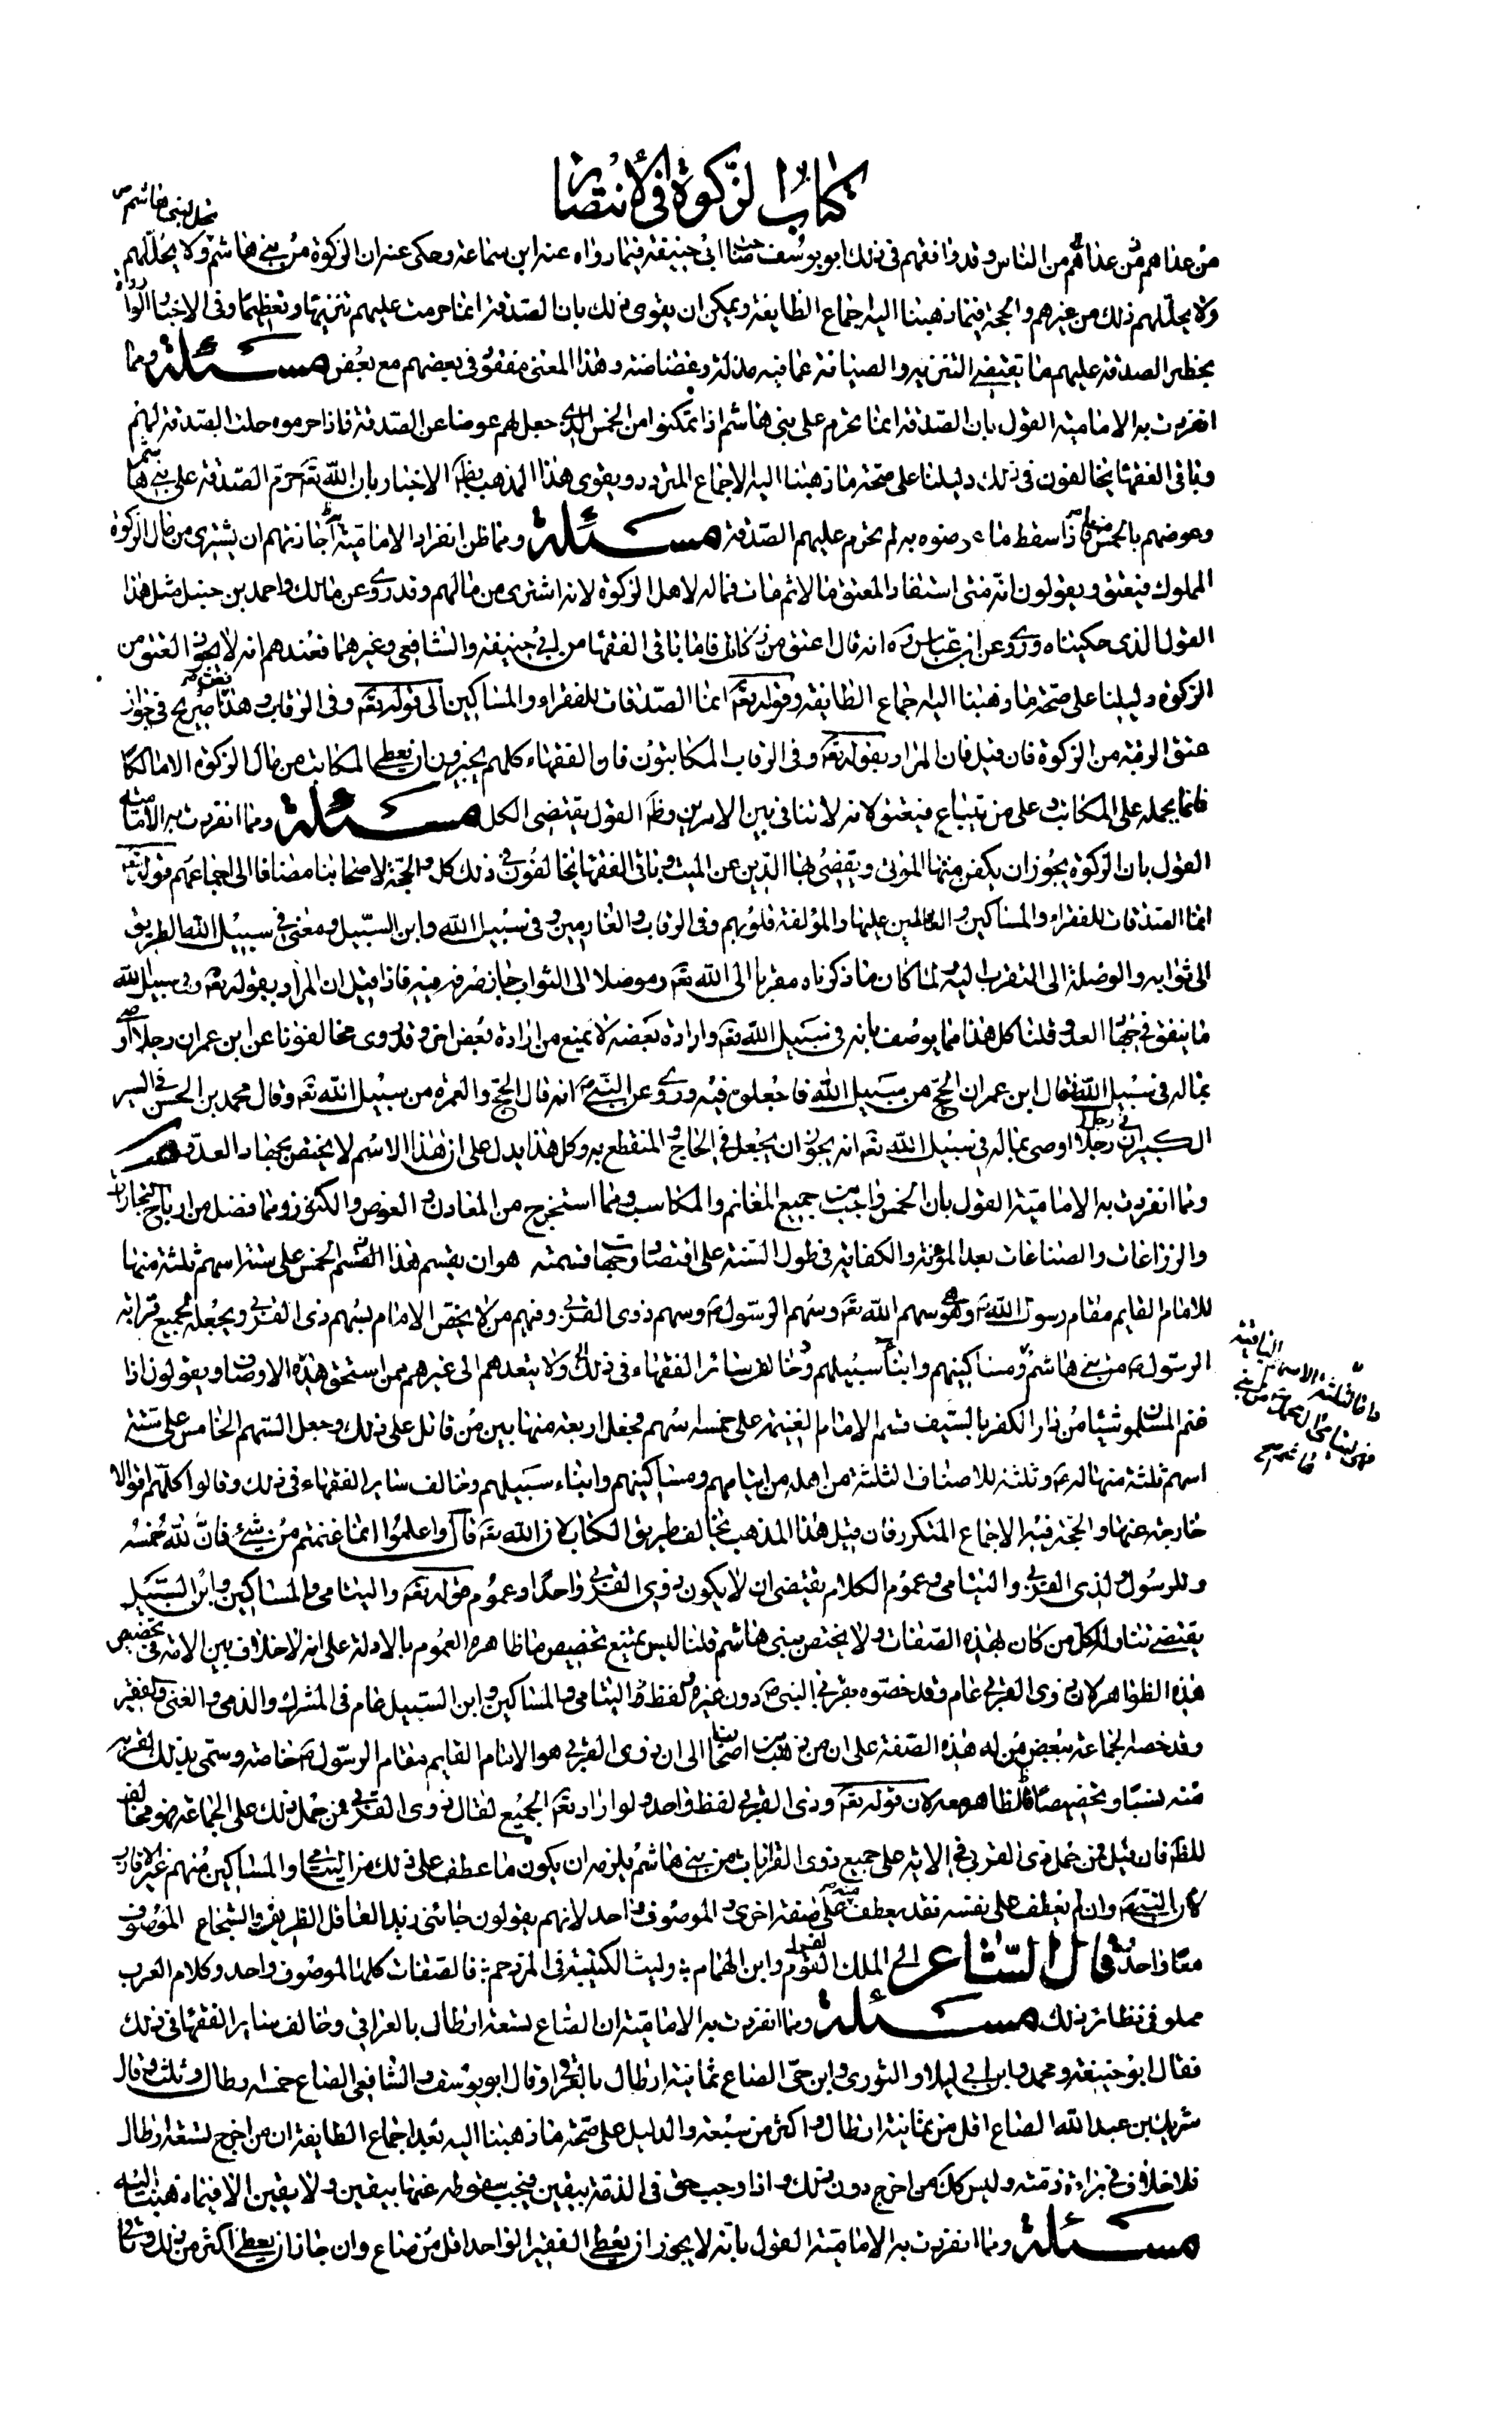 كتاب الزكوة في الانتصار
تحل لبني هاشم
من عداهم من عداهم من الناس وقد وافقهم في ذلك ابو يوسف صاحب ابي حنيفة فيما رواه عنه ابن سماعة وحكى عنه ان الزكوة من بني هاشم ولا يحل لهم
ولا يحل لهم ذلك من غيرهم والحجة فيما ذهبنا اليه اجماع الطايفة ويمكن ان يقوى ذلك بان الصدقة انما حرمت عليهم تنزيها وتعظيما وفي الاخبار الواردة
بحظر الصدقة عليهم ما يقتضي التنزيه والصيانة عما فيه مذلة وغضاضة وهذا المعنى مفقود في بعضهم مع بعض مسئلة ومما
انفردت به الامامية القول بان الصدقة انما تحرم على بني هاشم اذا تمكنوا من الخمس الذي جعل لهم عوضا عن الصدقة فاذا حرموه حلت الصدقة لهم
وباقي الفقهاء يخالفون في ذلك دليلنا على صحة ما ذهبنا اليه الاجماع المتردد ويقوى هذا المذهب بظ الاخبار بان الله تع حرم الصدقة على بني هاشم
وعوضهم بالخمس منها فاذا سقط ما عوضوه به لم تحرم عليهم الصدقة مسئلة ومما ظن انفراد الامامية به اجازتهم ان يشترى من مال الزكوة
المملوك فيعتق ويقولون انه متى استفاد المعتق مالا ثم مات فماله لاهل الزكوة لانه اشترى من مالهم وقد روي عن مالك واحمد بن حنبل مثل هذا
القول الذي حكيناه وروي عن ابن عباس ره انه قال اعتق من زكاتك فاما باقي الفقهاء من ابي حنيفة والشافعي وغيرهما فعندهم انه لا يجوز العتق من
الزكوة دليلنا على صحة ما ذهبنا اليه اجماع الطايفة وقوله تع انما الصدقات للفقراء والمساكين الى قوله تع وفي الرقاب وهذا نص صريح في جواز
عتق الرقبة من الزكوة فان قيل فان المراد بقوله تع وفي الرقاب المكاتبون فان الفقهاء كلهم يجيزون ان يعطى المكاتب من مال الزكوة الا مالكا
قلنا يحمله على المكاتب وعلى من يتباع فيعتق لانه لا تنافي بين الامرين وظ القول يقتضى الكل مسئلة ومما انفردت به الامامية
القول بان الزكوة يجوز ان يكفن منها الموتى ويقضى بها الدين عن الميت وباقي الفقهاء يخالفون في ذلك كله والحجة لاصحابنا مضافا الى اجماعهم قوله تع
انما الصدقات للفقراء والمساكين والعاملين عليها والمؤلفة قلوبهم وفي الرقاب والغارمين وفي سبيل الله وابن السبيل ومعنى في سبيل الله الطريق
الى ثوابه والوصلة الى التقرب اليه ولما كان ما ذكرناه مقربا الى الله تع وموصلا الى الثواب جاز صرفه فيه فاذا قيل ان المراد بقوله تع وفي سبيل الله
ما ينفق في جهاد العدو قلنا كل هذا مما يوصف بانه في سبيل الله تع وارادة بعضه لا يمنع من ارادة بعض اخر وقد روى مخالفونا عن ابن عمر ان رجلا اوصى
بماله في سبيل الله فقال ابن عمر ان الحج من سبيل الله فاجعلوه فيه وروي عن النبي ص انه قال الحج والعمرة من سبيل الله تع وقال محمد بن الحسن في السير
الكبير ان في رجل اوصى بماله في سبيل الله تع انه يجوز ان يجعل في الحاج المنقطع به وكل هذا يدل على ان هذا الاسم لا يختص بجهاد العدو مسئلة
ومما انفردت به الامامية القول بان الخمس واجب من جميع المغانم والمكاسب ومما استخرج من المعادن والغوص والكنوز ومما فضل من ارباح التجارات
والزراعات والصناعات بعد المؤنة والكفاية في طول السنة على اقتصاد وجهات قسمته هو ان يقسم هذا الخمس على ستة اسهم ثلثة منها
للامام القايم مقام رسول الله ص وهو سهم الله تع وسهم الرسول ص وسهم ذوي القربى وفيهم من لا يخص الامام بسهم ذي القربى ويجعله لجميع قرابة
الرسول ص من بني هاشم ومساكينهم وابناء سبيلهم وخالف سائر الفقهاء في ذلك ولا يتعداهم الى غيرهم ممن استحق هذه الاوصاف ويقولون اذا
غنم المسلمون شيئا من دار الكفر بالسيف قسم الامام الغنيمة على خمسة اسهم فجعل اربعة منها بين من قاتل على ذلك وجعل السهم الخامس على ستة
اسهم ثلثة منها له ع وثلثة للاصناف الثلثة من اهله من ايتامهم ومساكينهم وابناء سبيلهم وخالف ساير الفقهاء في ذلك وقالوا كلهم اقوالا
خارجة عنها والحجة فيه الاجماع المتكرر فان قيل هذا المذهب يخالف طريق الكتاب لان الله تع قال واعلموا انما غنمتم من شيء فان لله خمسه
وللرسول ولذي القربى واليتامى وعموم الكلام يقتضى ان لا يكون ذوي القربى واحدا وعموم قوله تع واليتامى والمساكين وابن السبيل
يقتضي تناوله لكل من كان بهذه الصفات ولا يختص ببني هاشم قلنا ليس يمتنع تخصيص ما ظاهره العموم بالادلة على انه لا خلاف بين الامة في تخصيص
هذه الظواهر لان ذوى القربى عام وقد خصوه بقربى النبي ص دون غيره ولفظ اليتامى والمساكين وابن السبيل عام في المشرك والذمي والغني والفقير
وقد خصه الجماعة ببعض من له هذه الصفة على ان من ذهب من اصحابنا الى ان ذوى القربى هو الامام القايم مقام الرسول ص خاصة وسمي بذلك لقربه
منه نسبا وتخصيصا فالظاهر معه لان قوله تع وذى القربى لفظ واحد ولو اراد تع الجميع لقال ذوى القربى فمن حمل ذلك على الجماعة فهو مخالف
للظ فان قيل فمن حمل ذى القربى في الاية على جميع ذوى القرابات من بني هاشم يلزمه ان يكون ما عطف على ذلك من اليتامى والمساكين منهم غير الاقارب
لان الشيء وان لم يعطف على نفسه فقد يعطف صفة على صفة اخرى والموصوف واحد لانهم يقولون جائني زيد العاقل الظريف والشجاع الموصوف
معا واحد وقال الشاعر الى الملك القرم وابن الهمام وليث الكتيبة في المزدحم فالصفات كلها لموصوف واحد وكلام العرب
مملو في نظائر ذلك مسئلة ومما انفردت به الامامية ان الصاع تسعة ارطال بالعراقي وخالف ساير الفقهاء في ذلك
فقال ابو حنيفة ومحمد وابن ابي ليلى والثوري وابن حي الصاع ثمانية ارطال بالعراقي وقال ابو يوسف والشافعي الصاع خمسة ارطال وثلث وقال
شريك بن عبد الله الصاع اقل من ثمانية ارطال واكثر من سبعة والدليل على صحة ما ذهبنا اليه بعد اجماع الطايفة ان من اخرج تسعة ارطال
فلا خلاف في براءة ذمته وليس كك من اخرج دون ذلك واذا وجب حق في الذمة بيقين فيجب سقوطه عنها بيقين ولا يقين الا فيما ذهبنا اليه
مسئلة ومما انفردت به الامامية القول بانه لا يجوز ان يعطى الفقير الواحد اقل من صاع وان جاز ان يعطى اكثر من ذلك وباقي